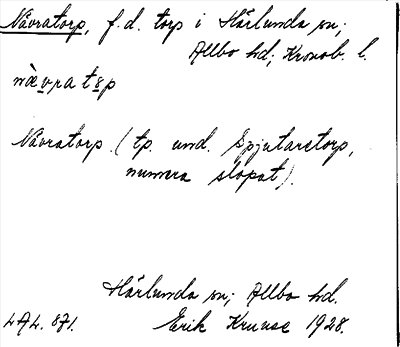 Nävratorp, f.d. torp i Härlunda sn;
Allbo hd; Kronob. l.
nævratɷp
Nävratorp. (tp. und. Spjutaretorp,
numera slopat).
Härlunda sn; Allbo hd.
LAL. 871. Erik Kruuse 1928.